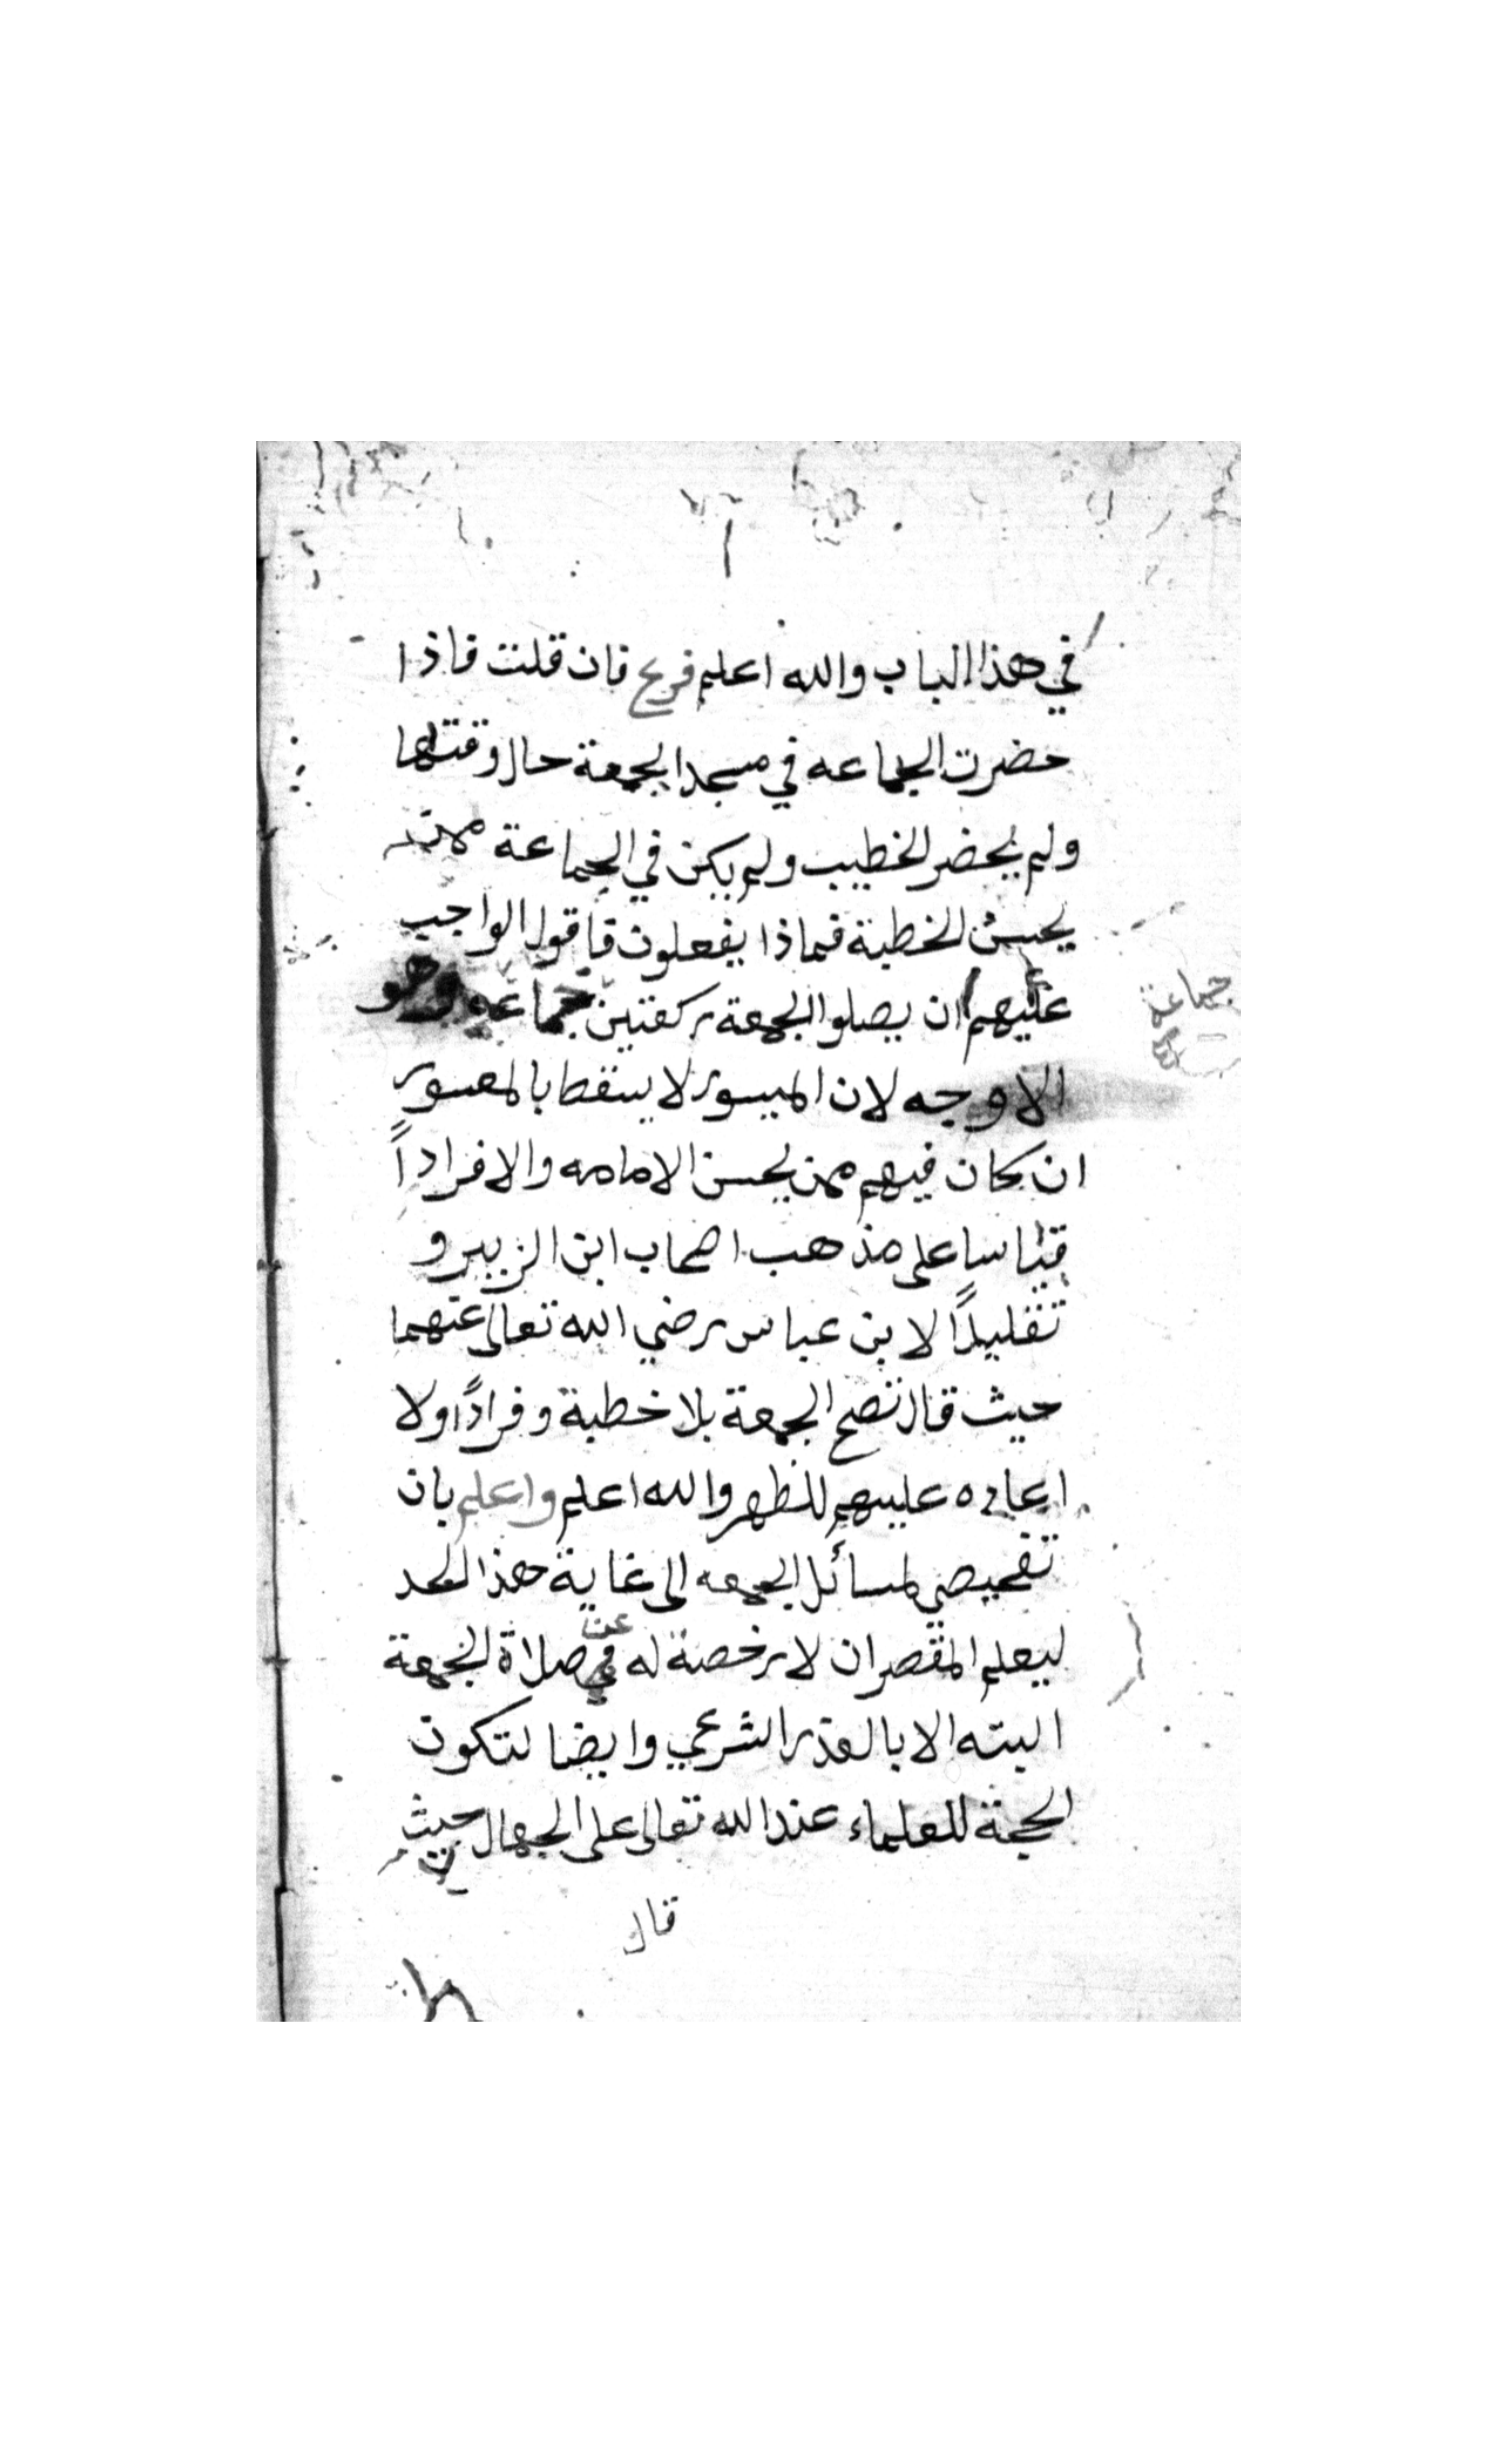 في هذا الباب والله اعلم فرع فان قلت فاذا
حضرت الجماعه في مسجد الجمعة حال وقتها
ولم يحضر الخطيب ولم يكن في الجماعة ممن
يحسن الخطبة فماذا يفعلون فاقول الواجب
عليهم ان يصلوا الجمعة ركعتين جماعه وهو
جماعة
الاوجه لان الميسور لا يسقط بالمعسور
ان كان فيهم ممن يحسن الامامه والا فراداً
قياسا على مذهب اصحاب ابن الزبير و
تقليداً لابن عباس رضي الله تعالى عنهما
حيث قال تصح الجمعة بلا خطبة وفراداً ولا
اعاده عليهم للظهر والله اعلم واعلم بان
تفحيصي لمسائل الجمعه الى غاية هذا الحد
ليعلم المقصر ان لا رخصة له في عن صلاة الجمعة
البته الا بالعذر الشرعي وايضا لتكون
الحجة للعلماء عند الله تعالى على الجهال حيث
قال